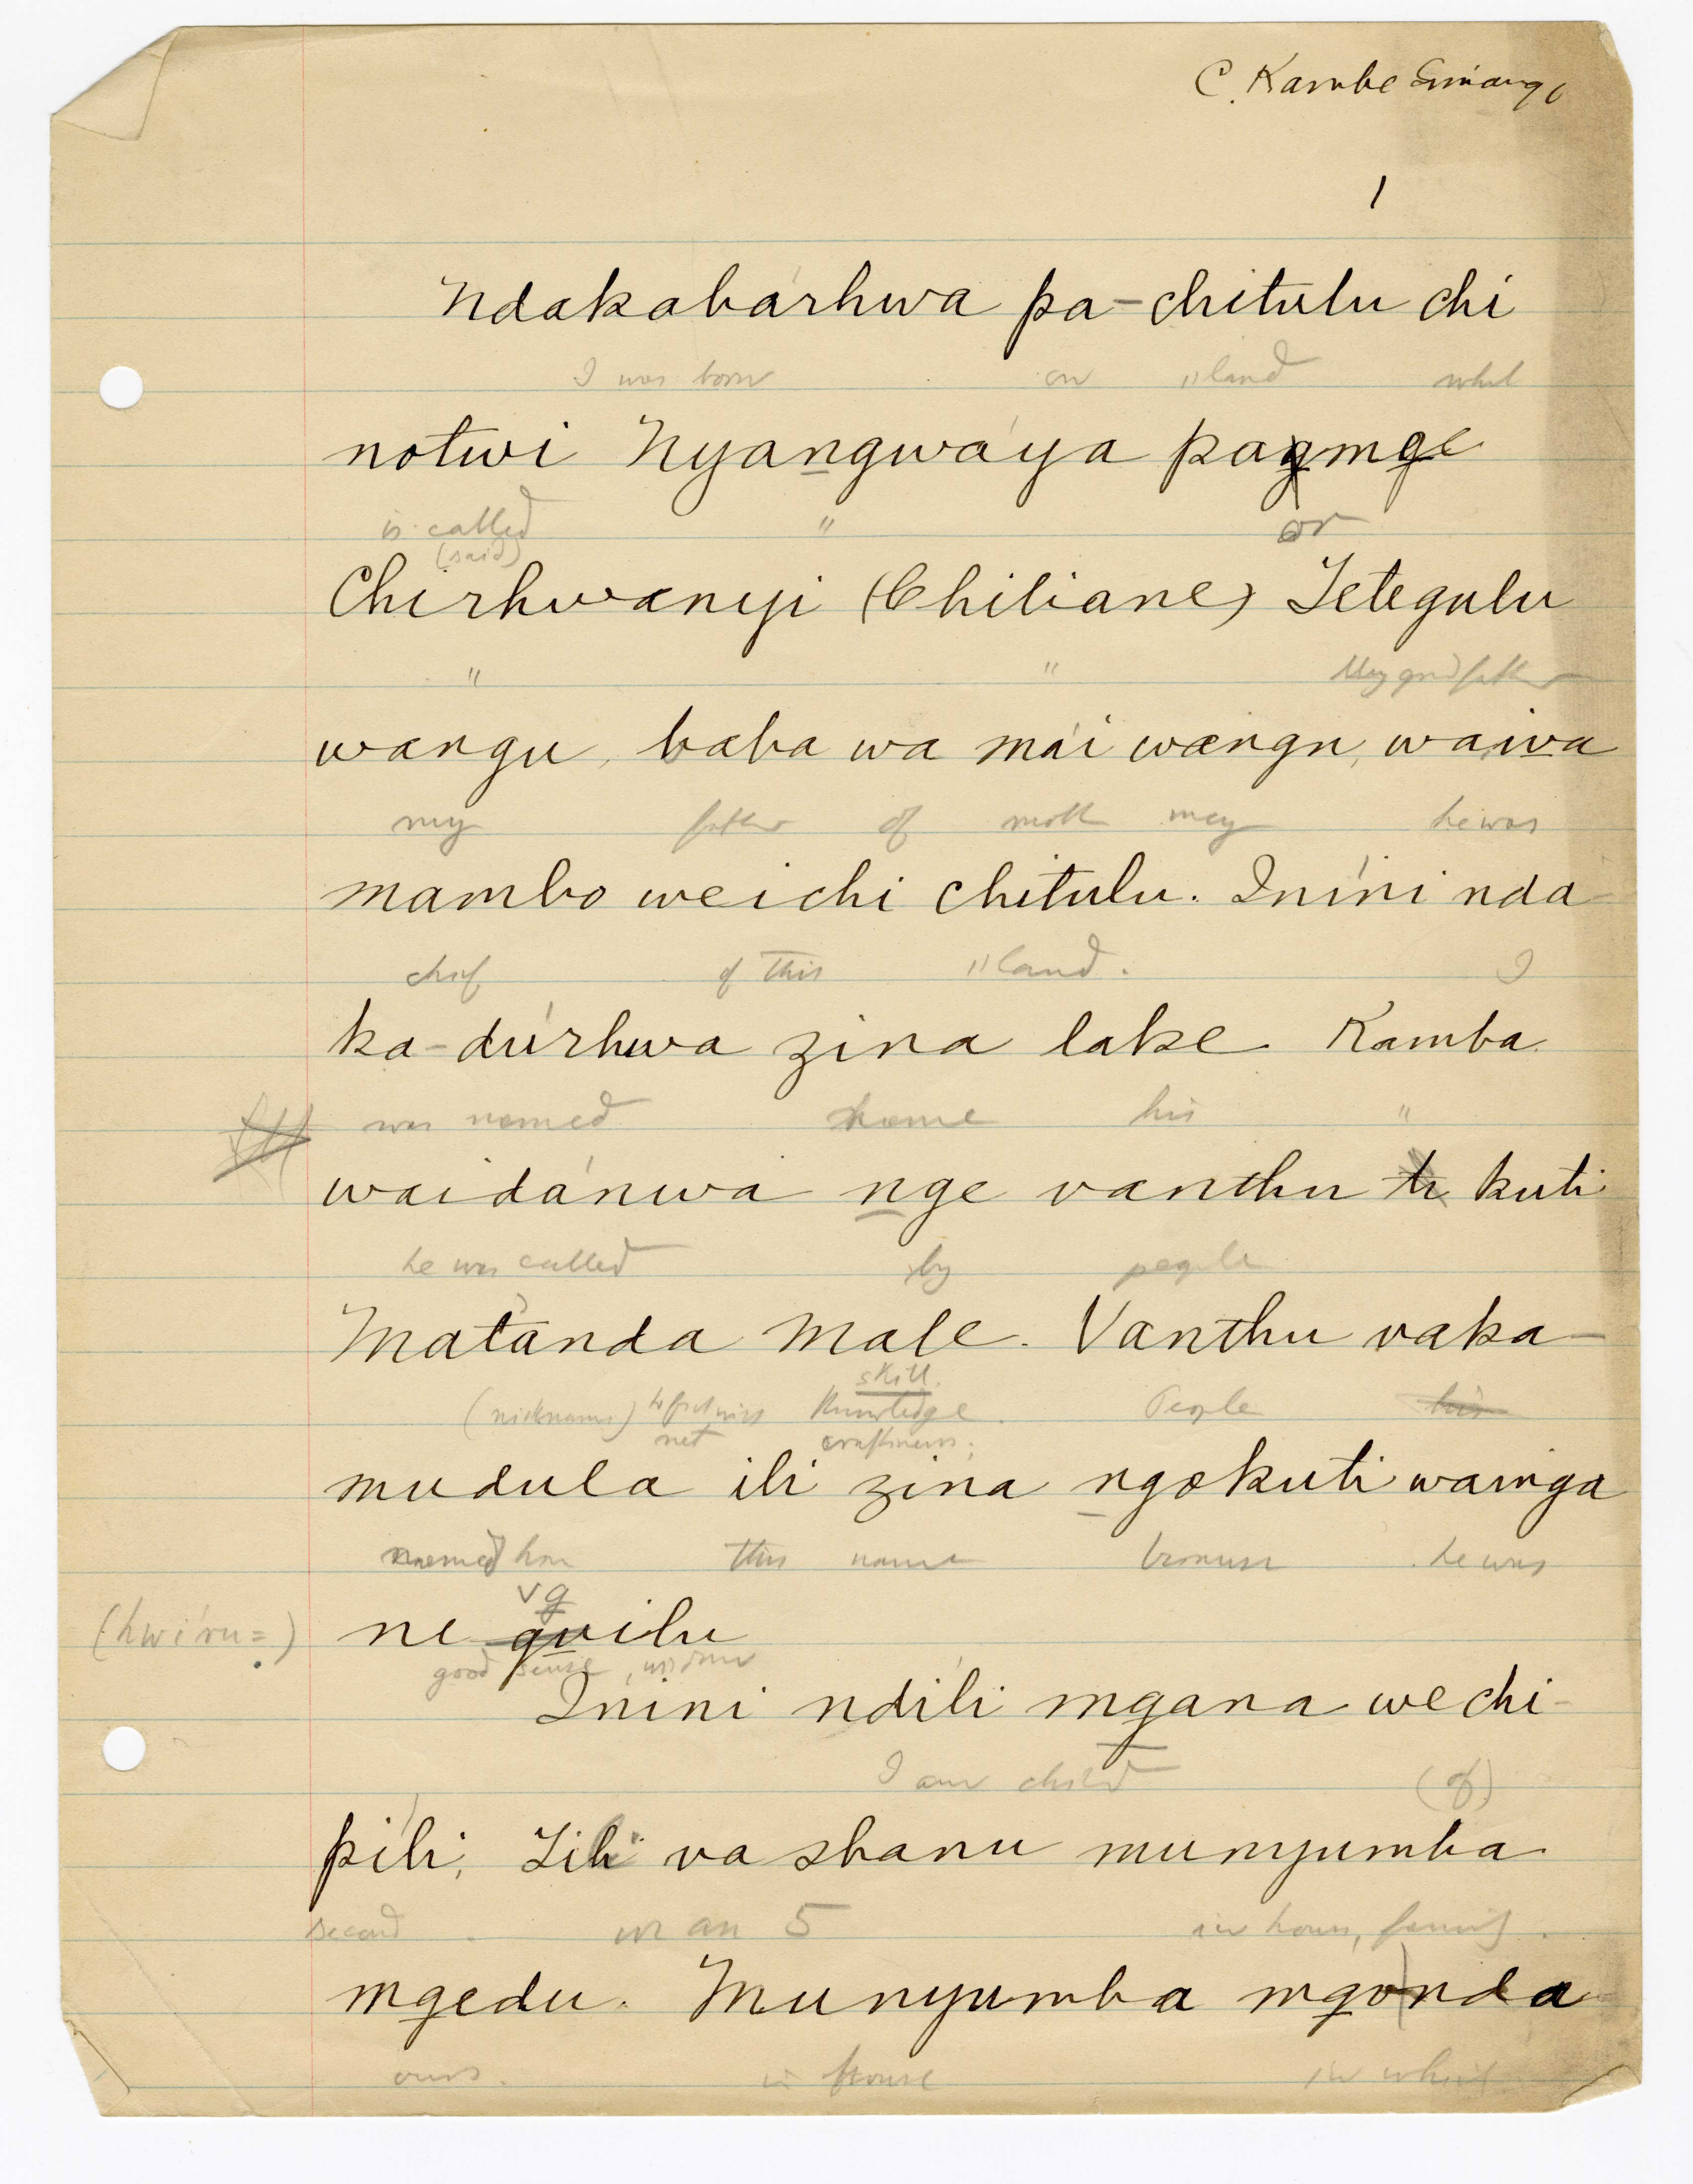 C. Kambe Simango
1
Ndakabárhwa pa-chitulu chi
I was born on island which
notwi Nyangwáya pagmge
is called " or
(said)
Chirhwanyi (Chiliane) Tetegulu
" " My grdfather
wangu, baba wa mái wangu, waiva
my father of moth my he was
mambo weichi chitulu. Iníni nda-
chief of this island. I
ka-dúrhwa zina lake Kamba.
was named name his "
waidánwa nge vanthu kuti
he was called by people
Matánda Male. Vanthu vaka-
skill.
(nickname) knowledge. People his
net craftiness.
mudula ili zina ngokuti wainga
named him this name because he was
vg
(hwíru=) ne guilu
good sense, wisdom
Iníni ndíli mgana we chi-
I am child (of)
píli, Tili va shanu munyumba
second. we are 5 in house, family.
mgedu. Munyumba mgonda
ours. in house in which